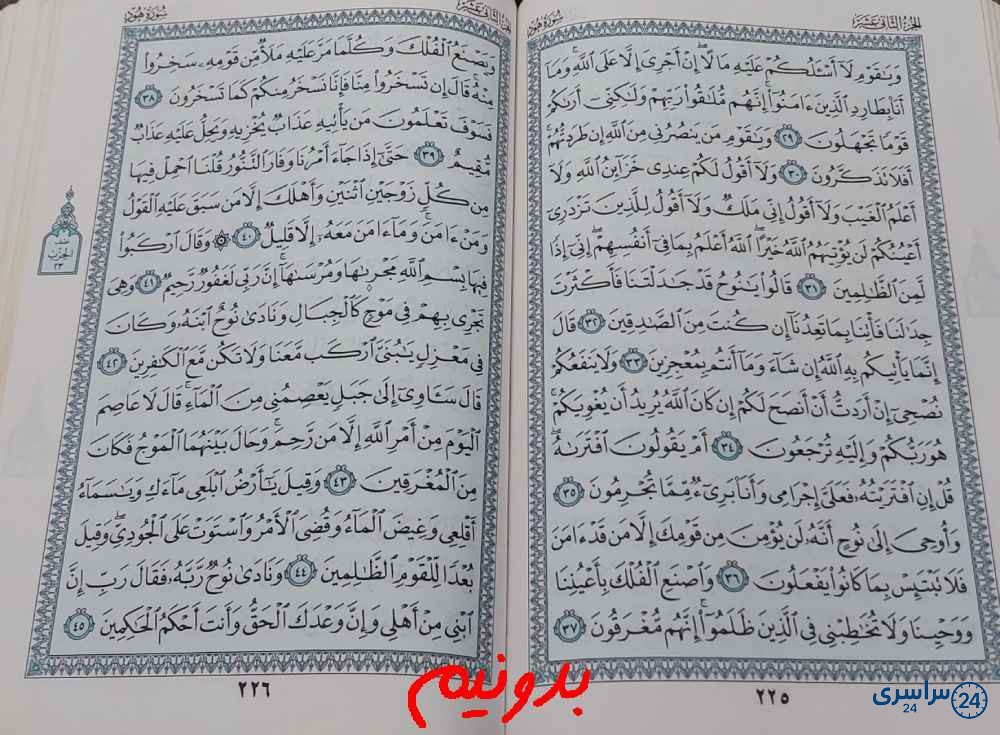 الجزء الثاني عشر
سورة هود
وَيَٰقَوْمِ لَآ أَسْـَٔلُكُمْ عَلَيْهِ مَالًا ۖ إِنْ أَجْرِىَ إِلَّا عَلَى ٱللَّهِ ۚ وَمَآ
أَنَا۠ بِطَارِدِ ٱلَّذِينَ ءَامَنُوٓا۟ ۚ إِنَّهُم مُّلَٰقُوا۟ رَبِّهِمْ وَلَٰكِنِّىٓ أَرَىٰكُمْ
قَوْمًا تَجْهَلُونَ ٢٩ وَيَٰقَوْمِ مَن يَنصُرُنِى مِنَ ٱللَّهِ إِن طَرَدتُّهُمْ ۚ
أَفَلَا تَذَكَّرُونَ ٣٠ وَلَآ أَقُولُ لَكُمْ عِندِى خَزَآئِنُ ٱللَّهِ وَلَآ
أَعْلَمُ ٱلْغَيْبَ وَلَآ أَقُولُ إِنِّى مَلَكٌ وَلَآ أَقُولُ لِلَّذِينَ تَزْدَرِىٓ
أَعْيُنُكُمْ لَن يُؤْتِيَهُمُ ٱللَّهُ خَيْرًا ۖ ٱللَّهُ أَعْلَمُ بِمَا فِىٓ أَنفُسِهِمْ ۖ إِنِّىٓ إِذًا
لَّمِنَ ٱلظَّٰلِمِينَ ٣١ قَالُوا۟ يَٰنُوحُ قَدْ جَٰدَلْتَنَا فَأَكْثَرْتَ
جِدَٰلَنَا فَأْتِنَا بِمَا تَعِدُنَآ إِن كُنتَ مِنَ ٱلصَّٰدِقِينَ ٣٢ قَالَ
إِنَّمَا يَأْتِيكُم بِهِ ٱللَّهُ إِن شَآءَ وَمَآ أَنتُم بِمُعْجِزِينَ ٣٣ وَلَا يَنفَعُكُمْ
نُصْحِىٓ إِنْ أَرَدتُّ أَنْ أَنصَحَ لَكُمْ إِن كَانَ ٱللَّهُ يُرِيدُ أَن يُغْوِيَكُمْ ۚ
هُوَ رَبُّكُمْ وَإِلَيْهِ تُرْجَعُونَ ٣٤ أَمْ يَقُولُونَ ٱفْتَرَىٰهُ ۖ
قُلْ إِنِ ٱفْتَرَيْتُهُۥ فَعَلَىَّ إِجْرَامِى وَأَنَا۠ بَرِىٓءٌ مِّمَّا تُجْرِمُونَ ٣٥
وَأُوحِىَ إِلَىٰ نُوحٍ أَنَّهُۥ لَن يُؤْمِنَ مِن قَوْمِكَ إِلَّا مَن قَدْ ءَامَنَ
فَلَا تَبْتَئِسْ بِمَا كَانُوا۟ يَفْعَلُونَ ٣٦ وَٱصْنَعِ ٱلْفُلْكَ بِأَعْيُنِنَا
وَوَحْيِنَا وَلَا تُخَٰطِبْنِى فِى ٱلَّذِينَ ظَلَمُوٓا۟ ۚ إِنَّهُم مُّغْرَقُونَ ٣٧
٢٢٥
الجزء الثاني عشر
سورة هود
وَيَصْنَعُ ٱلْفُلْكَ وَكُلَّمَا مَرَّ عَلَيْهِ مَلَأٌ مِّن قَوْمِهِۦ سَخِرُوا۟
مِنْهُ ۚ قَالَ إِن تَسْخَرُوا۟ مِنَّا فَإِنَّا نَسْخَرُ مِنكُمْ كَمَا تَسْخَرُونَ ٣٨
فَسَوْفَ تَعْلَمُونَ مَن يَأْتِيهِ عَذَابٌ يُخْزِيهِ وَيَحِلُّ عَلَيْهِ عَذَابٌ
مُّقِيمٌ ٣٩ حَتَّىٰٓ إِذَا جَآءَ أَمْرُنَا وَفَارَ ٱلتَّنُّورُ قُلْنَا ٱحْمِلْ فِيهَا
مِن كُلٍّ زَوْجَيْنِ ٱثْنَيْنِ وَأَهْلَكَ إِلَّا مَن سَبَقَ عَلَيْهِ ٱلْقَوْلُ
وَمَنْ ءَامَنَ ۚ وَمَآ ءَامَنَ مَعَهُۥٓ إِلَّا قَلِيلٌ ٤٠ ۞ وَقَالَ ٱرْكَبُوا۟
فِيهَا بِسْمِ ٱللَّهِ مَجْر۪ىٰهَا وَمُرْسَىٰهَآ ۚ إِنَّ رَبِّى لَغَفُورٌ رَّحِيمٌ ٤١ وَهِىَ
تَجْرِى بِهِمْ فِى مَوْجٍ كَٱلْجِبَالِ وَنَادَىٰ نُوحٌ ٱبْنَهُۥ وَكَانَ
فِى مَعْزِلٍ يَٰبُنَىَّ ٱرْكَب مَّعَنَا وَلَا تَكُن مَّعَ ٱلْكَٰفِرِينَ ٤٢
قَالَ سَـَٔاوِىٓ إِلَىٰ جَبَلٍ يَعْصِمُنِى مِنَ ٱلْمَآءِ ۚ قَالَ لَا عَاصِمَ
ٱلْيَوْمَ مِنْ أَمْرِ ٱللَّهِ إِلَّا مَن رَّحِمَ ۚ وَحَالَ بَيْنَهُمَا ٱلْمَوْجُ فَكَانَ
مِنَ ٱلْمُغْرَقِينَ ٤٣ وَقِيلَ يَٰٓأَرْضُ ٱبْلَعِى مَآءَكِ وَيَٰسَمَآءُ
أَقْلِعِى وَغِيضَ ٱلْمَآءُ وَقُضِىَ ٱلْأَمْرُ وَٱسْتَوَتْ عَلَى ٱلْجُودِىِّ ۖ وَقِيلَ
بُعْدًا لِّلْقَوْمِ ٱلظَّٰلِمِينَ ٤٤ وَنَادَىٰ نُوحٌ رَّبَّهُۥ فَقَالَ رَبِّ إِنَّ
ٱبْنِى مِنْ أَهْلِى وَإِنَّ وَعْدَكَ ٱلْحَقُّ وَأَنتَ أَحْكَمُ ٱلْحَٰكِمِينَ ٤٥
٢٢٦
الحزب
٢٣
بدونیم
سراسری 24
24